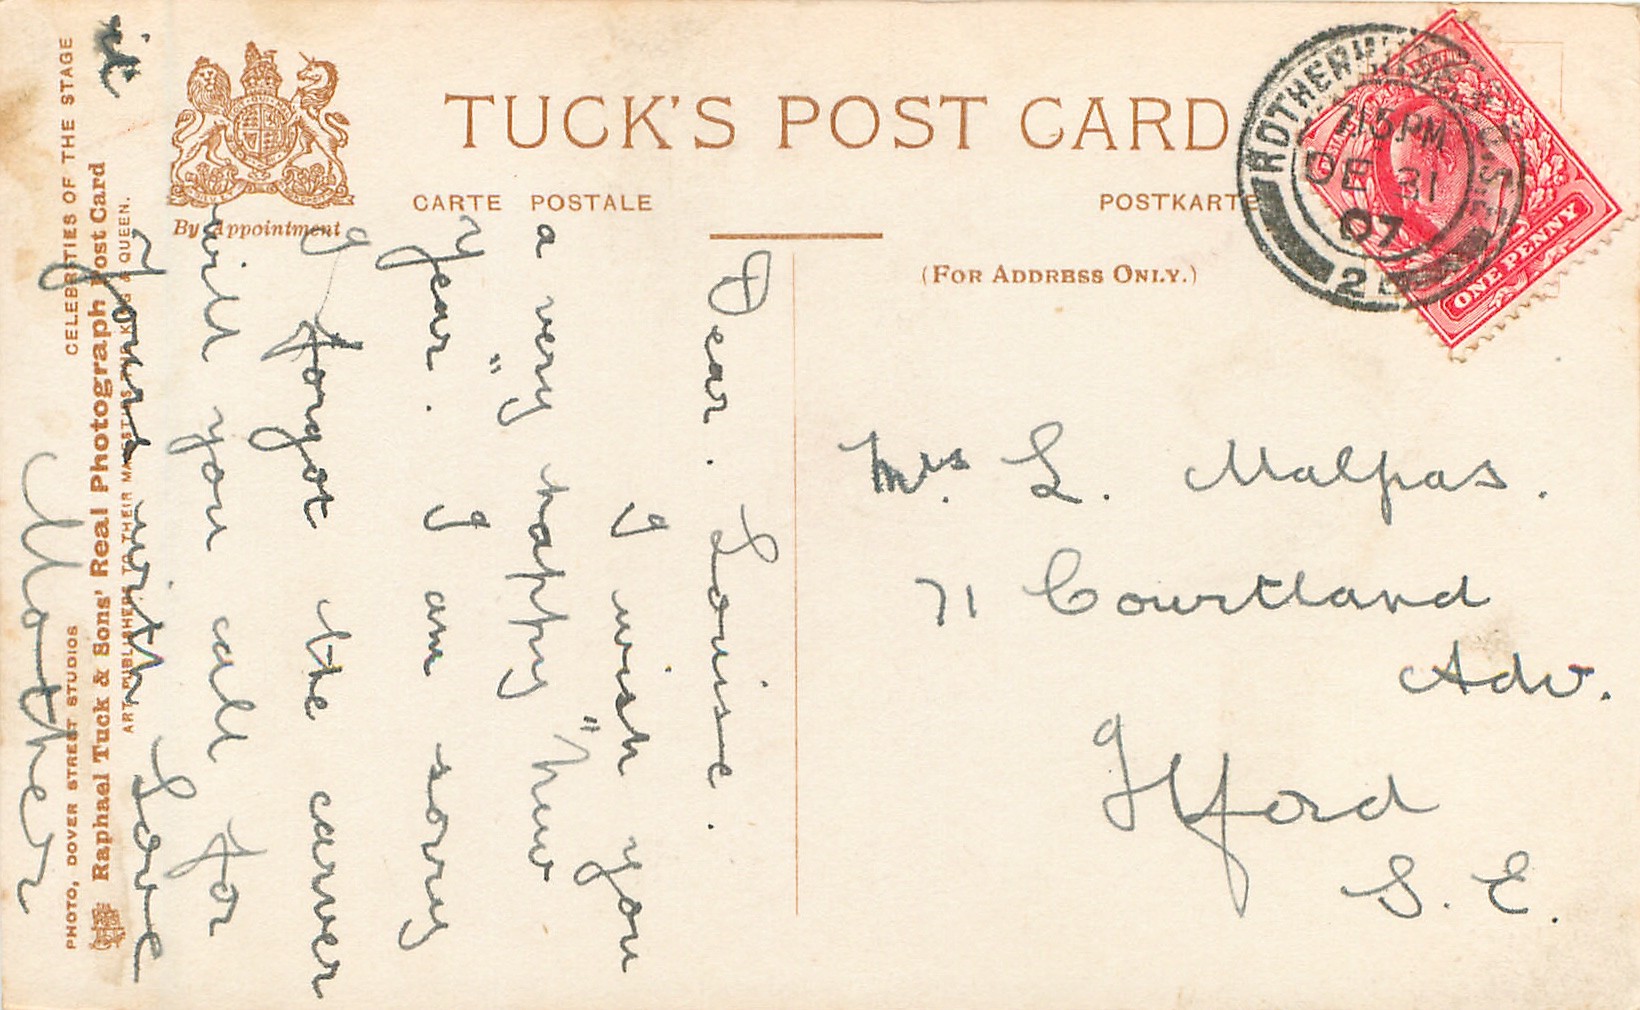 TUCK'S POST CARD
CARTE POSTALE
POSTKARTE
(FOR ADDRESS ONLY.)
By Appointment
ROTHERHITHE
7.15PM
DE 31
07
ONE PENNY
Mrs. L. Malpas.
71 Courtland
Adv.
Ilford
S. E.
Dear. Louise.
I wish you
a very "happy" new
year. I am sorry
I forgot the carver
will you call for
it
Yours with Love
Mother
CELEBRITIES OF THE STAGE
PHOTO, DOVER STREET STUDIOS
Raphael Tuck & Sons' Real Photograph Post Card
ART PUBLISHERS TO THEIR MAJESTIES THE KING & QUEEN.